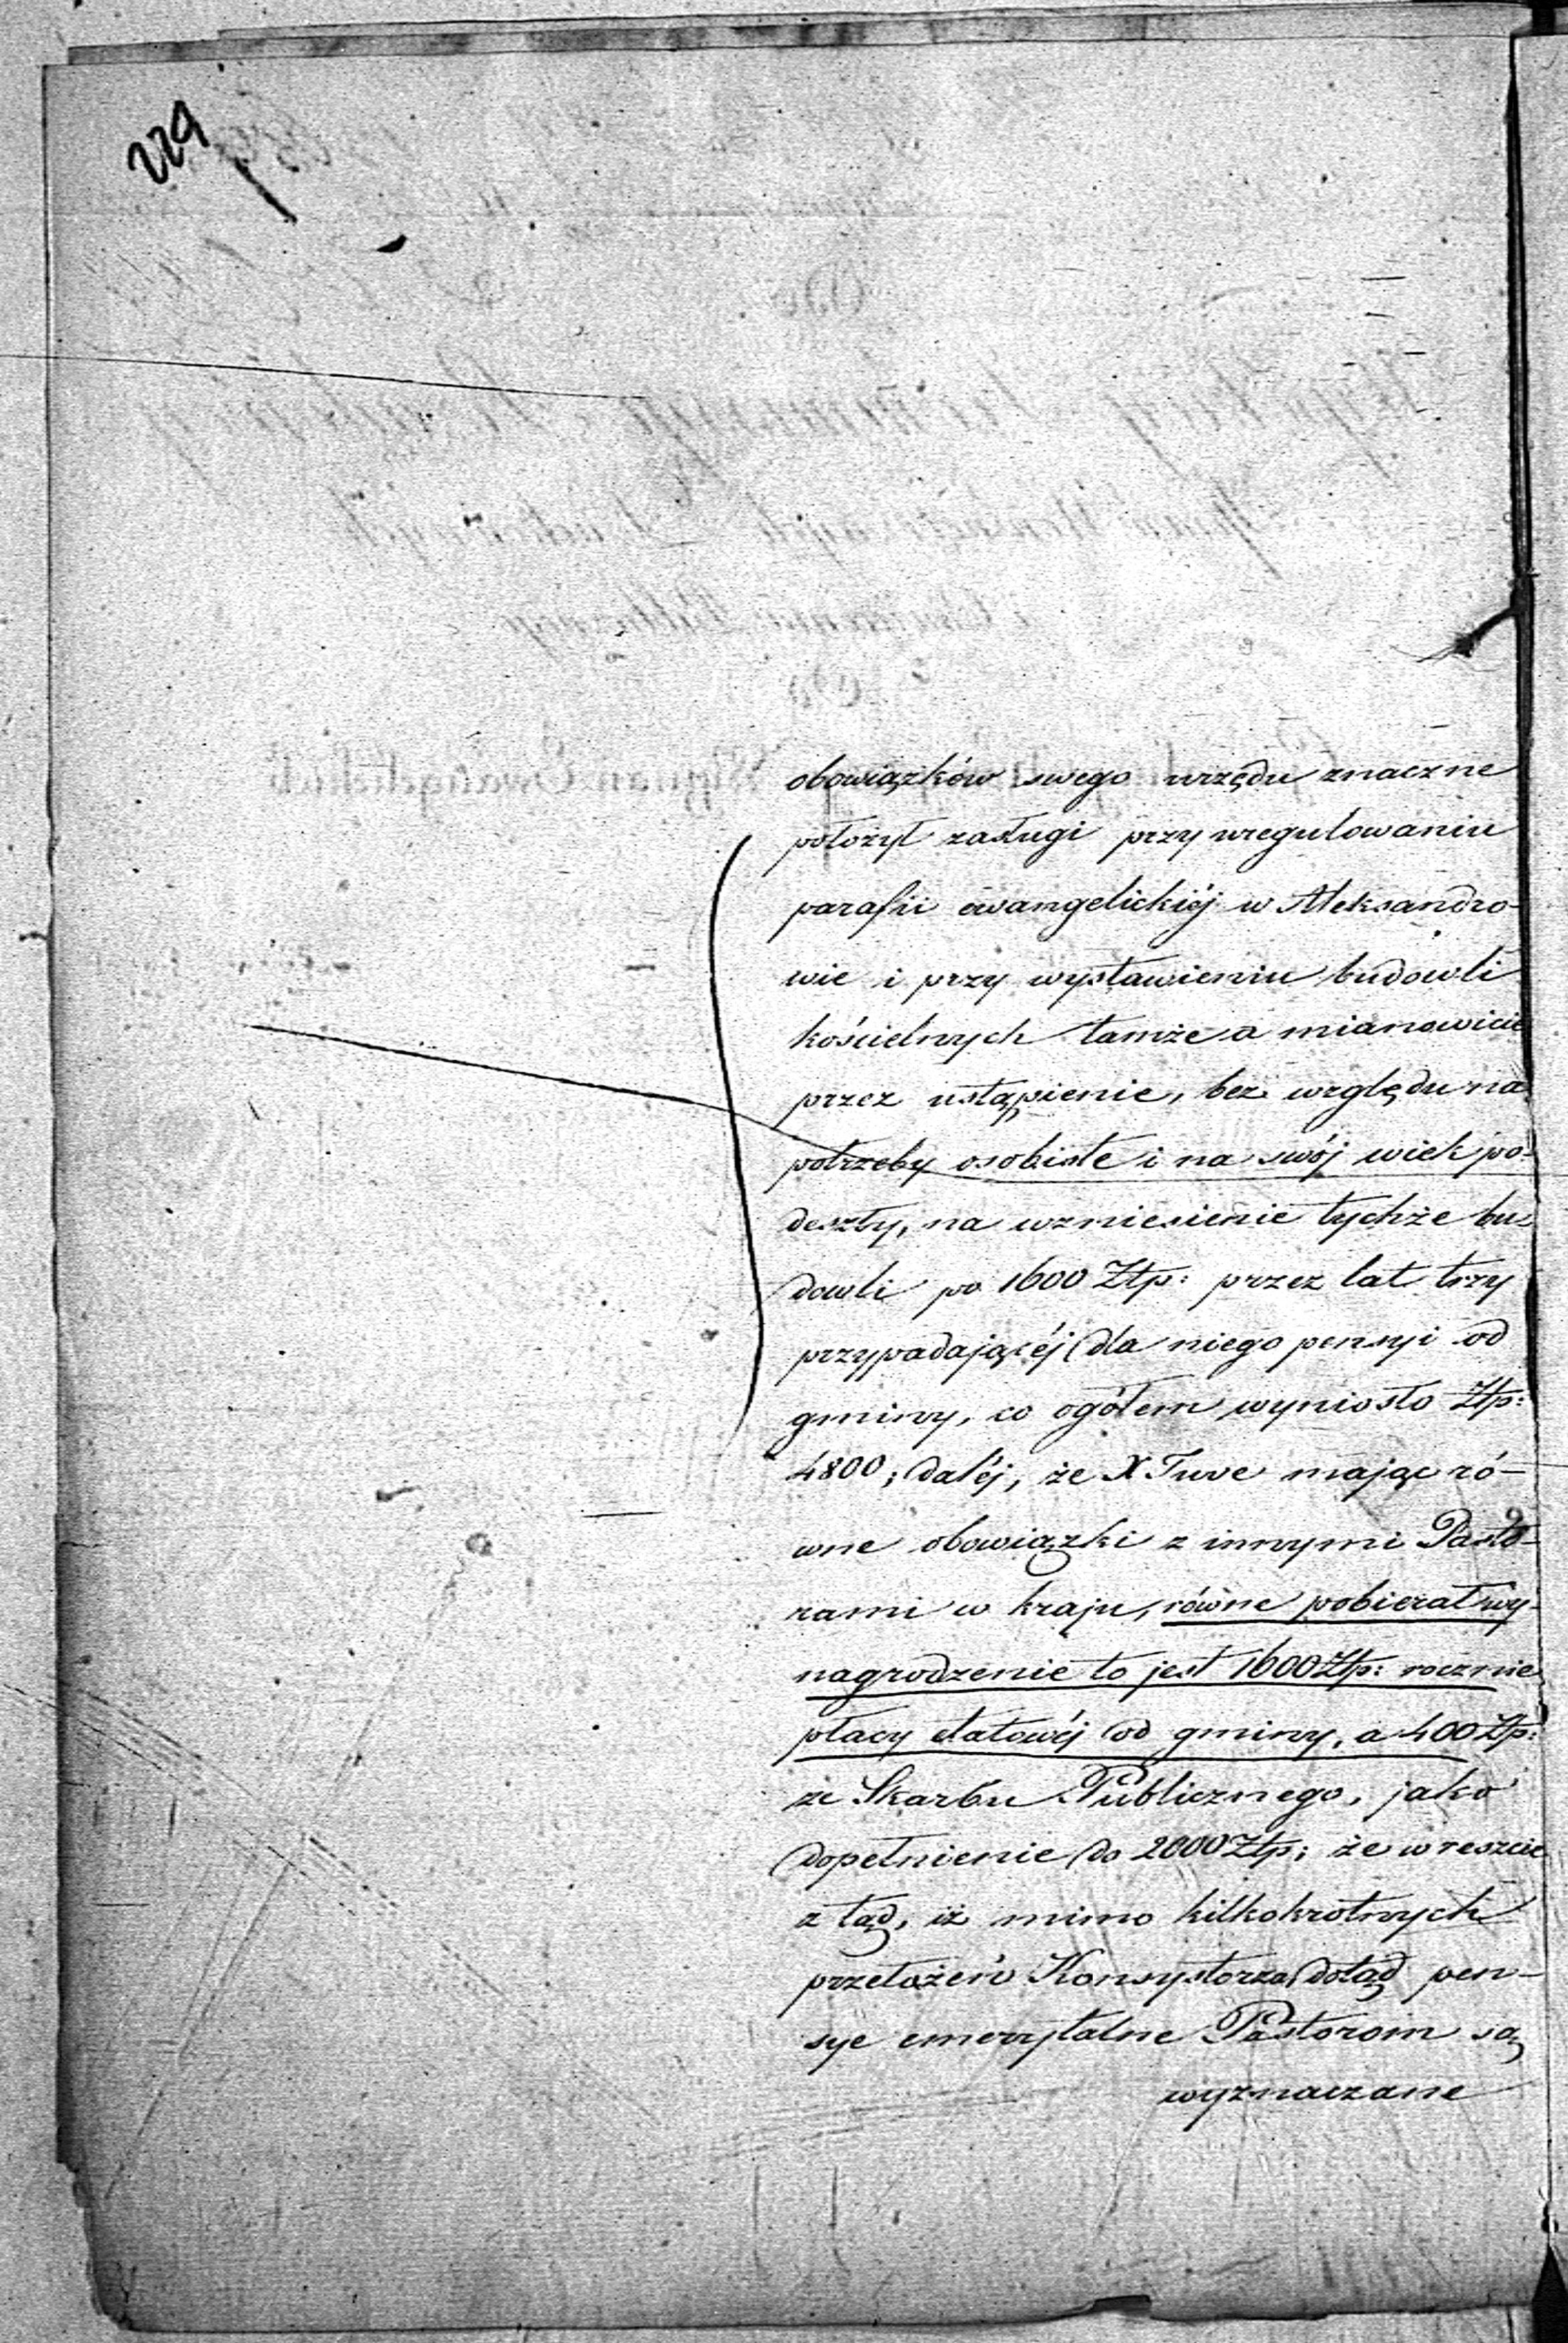 229
obowiązków swego urzędu znaczne
położył zasługi przy uregulowaniu
parafii ewangelickiéj w Aleksandro-
wie i przy wystawieniu budowli
kościelnych tamże a mianowicie
przez ustąpienie, bez względu na
potrzeby osobiste i na swój wiek po-
deszły, na wzniesienie tychże bu-
dowli po 1600 Złp: przez lat trzy
przypadającéj dla niego pensyi od
gminy, co ogółem wyniosło Złp:
4800; daléj, że X Tuve mając ró-
wne obowiązki z innymi Pasto-
rami w kraju, równe pobierał wy-
nagrodzenie to jest 1600 Złp: rocznie
płacy etatowéj od gminy, a 400 Złp:
ze Skarbu Publicznego, jako
dopełnienie do 2000 Złp; że wreszcie
z tąd, iż mimo kilkokrotnych
przełożeń Konsystorza dotąd pen-
sye emerytalne Pastorom są
wyznaczane